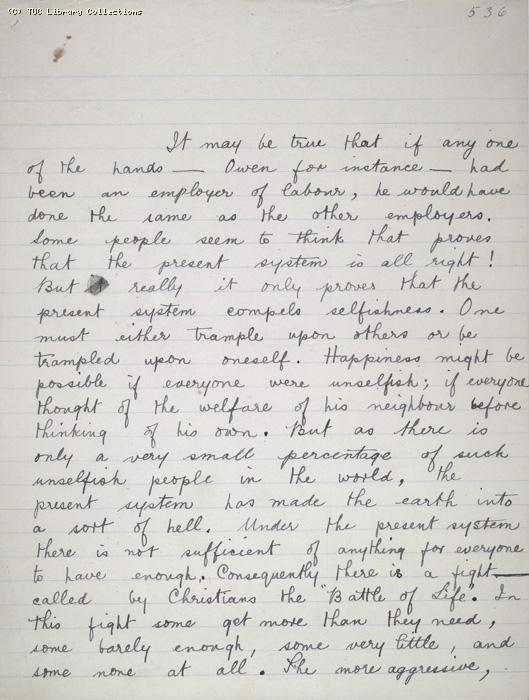 (C) TUC Library Collections
536
It may be true that if any one
of the hands — Owen for instance — had
been an employer of labour, he would have
done the same as the other employers.
Some people seem to think that proves
that the present system is all right!
But really it only proves that the
present system compels selfishness. One
must either trample upon others or be
trampled upon oneself. Happiness might be
possible if everyone were unselfish; if everyone
thought of the welfare of his neighbour before
thinking of his own. But as there is
only a very small percentage of such
unselfish people in the world, the
present system has made the earth into
a sort of hell. Under the present system
there is not sufficient of anything for everyone
to have enough. Consequently there is a fight —
called by Christians the "Battle of Life". In
this fight some get more than they need,
some barely enough, some very little, and
some none at all. The more aggressive,